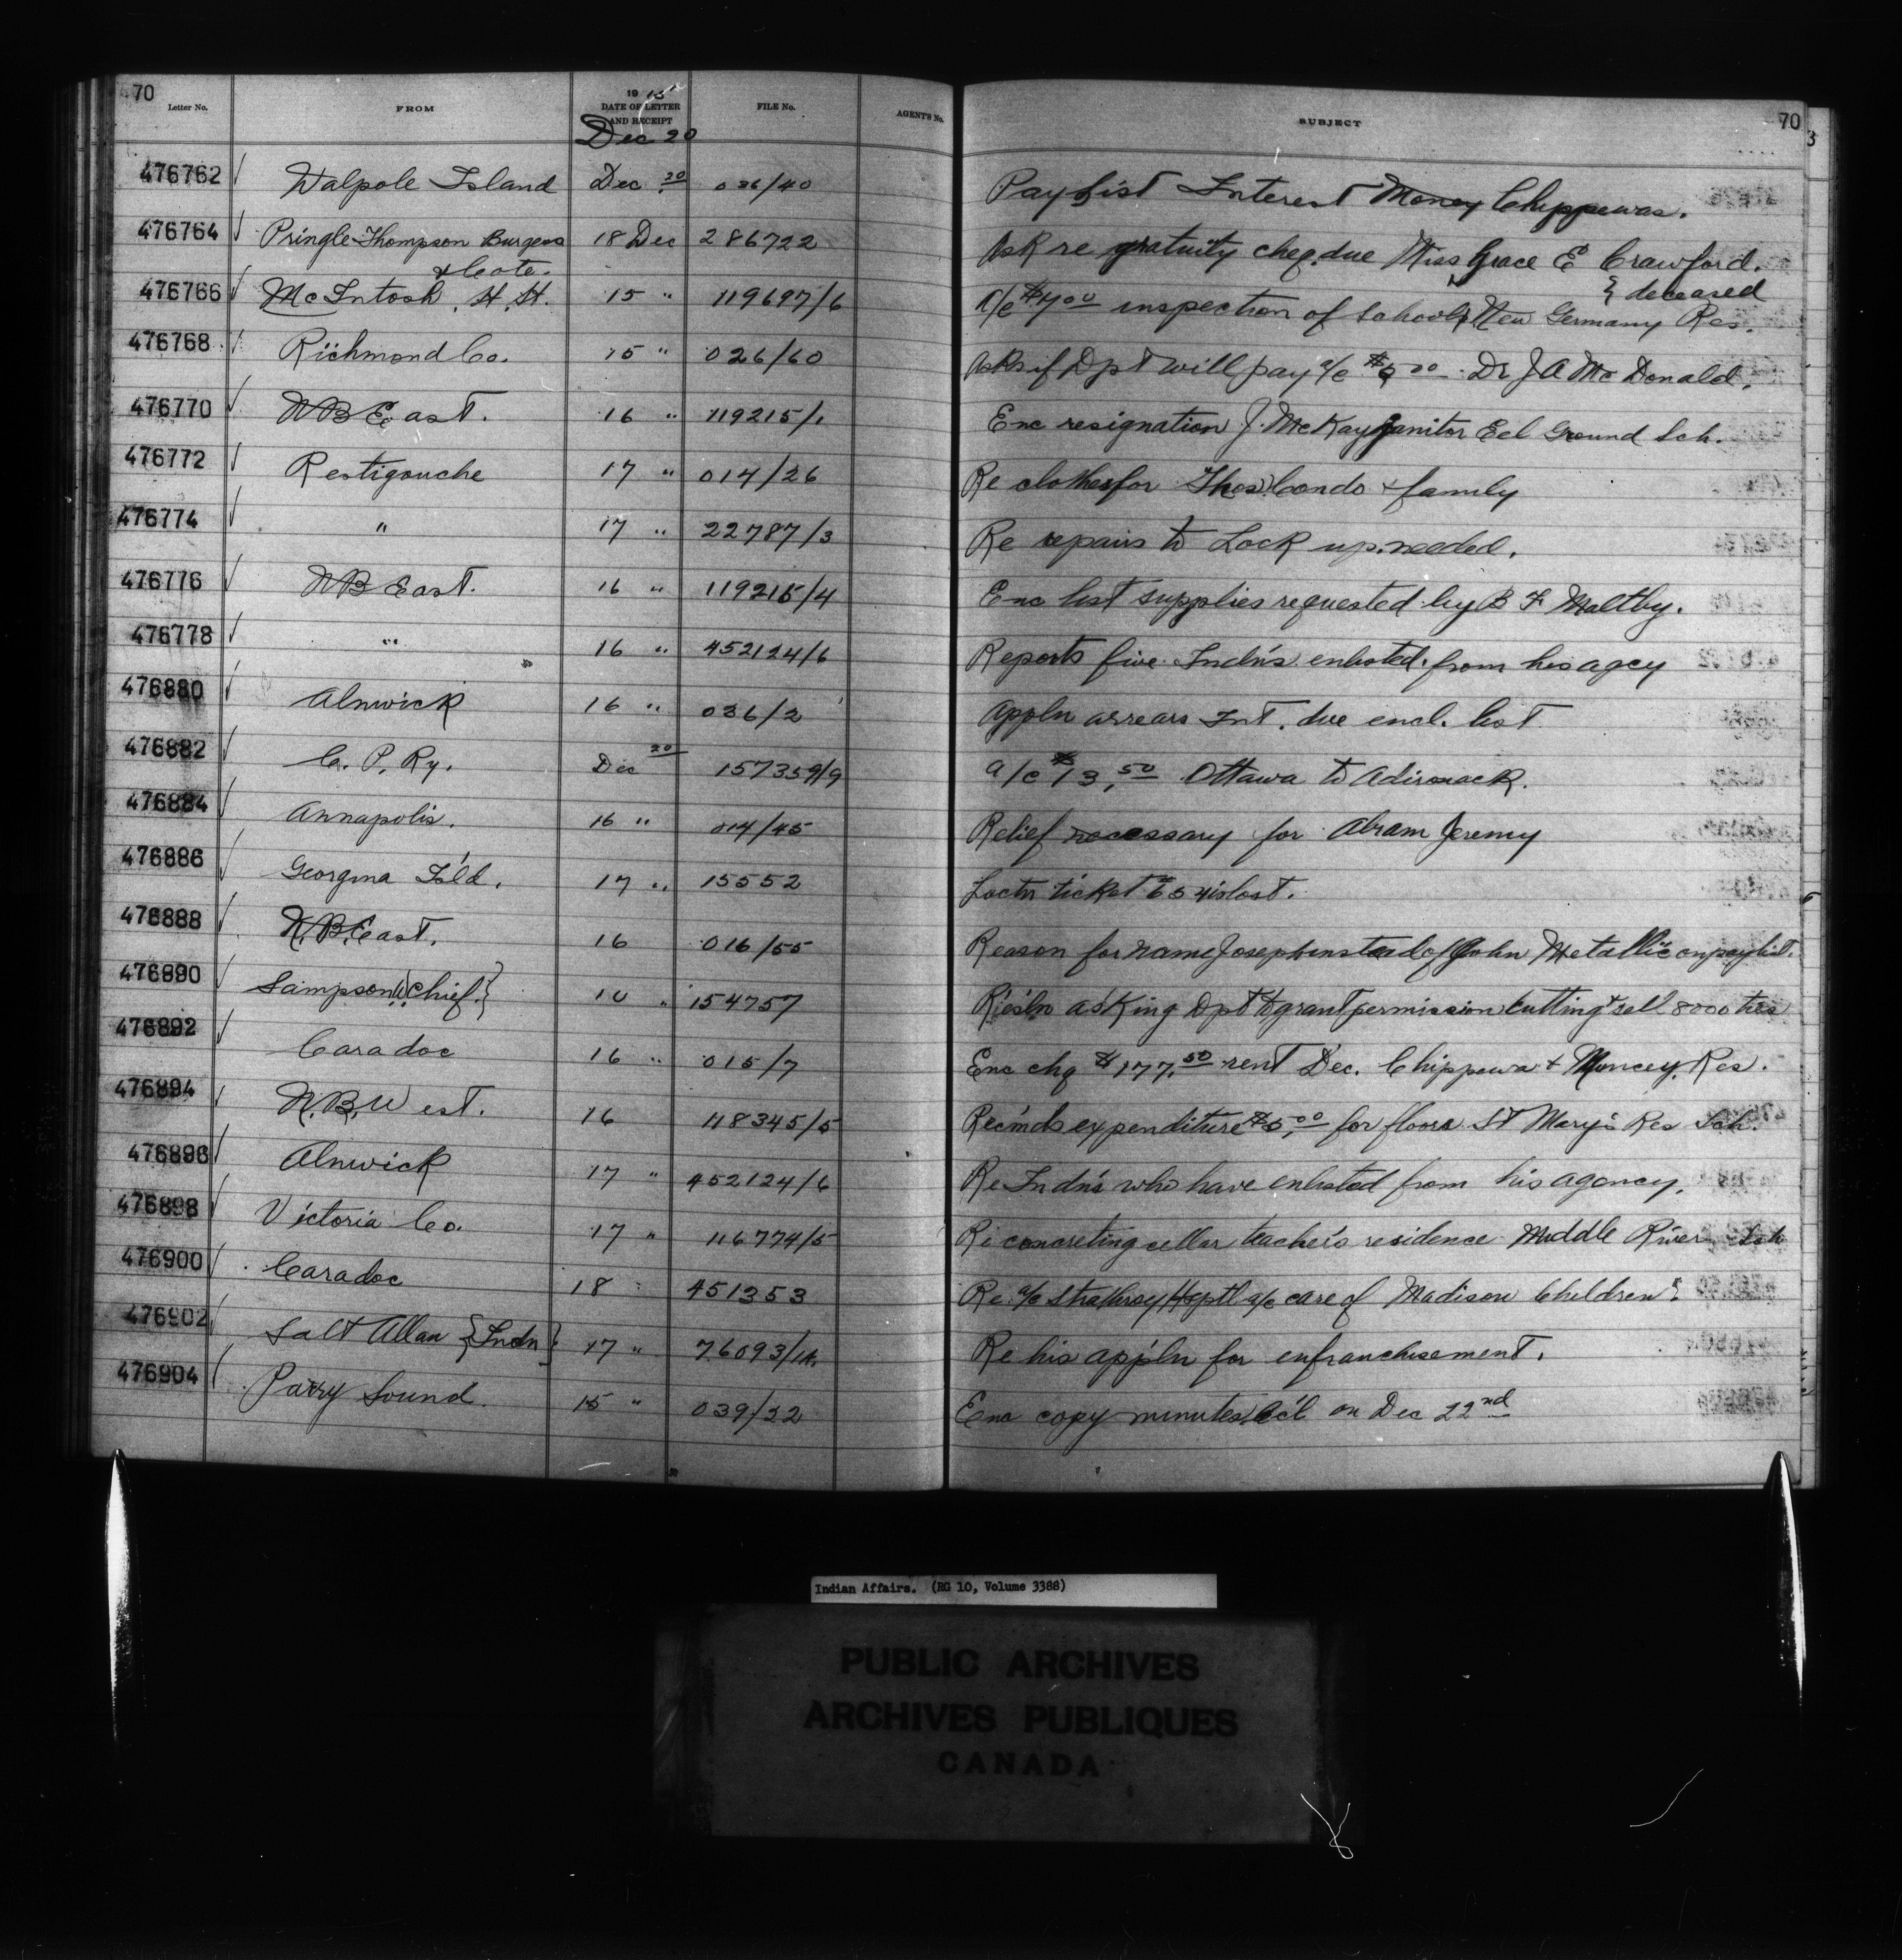 70
Letter No. FROM 1915 DATE OF LETTER AND RECEIPT FILE No. AGENT'S No. SUBJECT 70
Dec 20
476762 Walpole Island Dec 20 036/40 Pay List Interest Money Chippewas.
476764 Pringle Thompson Burgess & Cote. 18 Dec 286722 Ask re gratuity cheq. due Miss Grace E Crawford. } deceased
476766 McIntosh, H. H. 15 " 119697/6 A/c $4.00 inspection of Schools New Germany Res.
476768 Richmond Co. 15 " 026/60 Asks if Dpt will pay a/c $6.00 Dr J A McDonald.
476770 N B East. 16 " 119215/1 Enc resignation J. McKay Janitor Eel Ground Sch.
476772 Restigouche 17 " 014/26 Re clothes for Thos. Condo & family
476774 " 17 " 22787/3 Re repairs to Lock up needed.
476776 N B East. 16 " 119215/4 Enc list supplies requested by B F Maltby.
476778 " 16 " 452124/6 Reports five Indn's enlisted from his agcy
476880 Alnwick 16 " 036/2 Appln arrears Int. due encl. list
476882 C. P. Ry. Dec 20 157359/9 a/c $13.50 Ottawa to Adironack.
476884 Annapolis. 16 " 014/45 Relief necessary for Abram Jeremy
476886 Georgina Isl'd. 17 " 15552 Loctn ticket 654 is lost.
476888 N. B. East. 16 016/55 Reason for name Joseph instead of John Metallic on paylist.
476890 Sampson W {Chief} 10 " 154757 Res'ln asking Dpt to grant permission cutting & sell 8000 ties
476892 Caradoc 16 " 015/7 Enc chq $177.50 rent Dec. Chippewa & Muncey Res.
476894 N. B. West. 16 118345/5 Rec'mds expenditure $5.00 for floors St Mary's Res Sch.
476896 Alnwick 17 " 452124/6 Re Indn's who have enlisted from his agency.
476898 Victoria Co. 17 " 116774/5 Re concreting cellar teacher's residence Middle River Sch
476900 Caradoc 18 " 451353 Re a/c Strathroy Hsptl a/c care of Madison Children
476902 Salt Allan {Indn} 17 " 76093/14. Re his appln for enfranchisement.
476904 Parry Sound. 15 " 039/22 Enc copy minutes Cc'l on Dec 22nd
Indian Affairs. (RG 10, Volume 3388)
PUBLIC ARCHIVES
ARCHIVES PUBLIQUES
CANADA